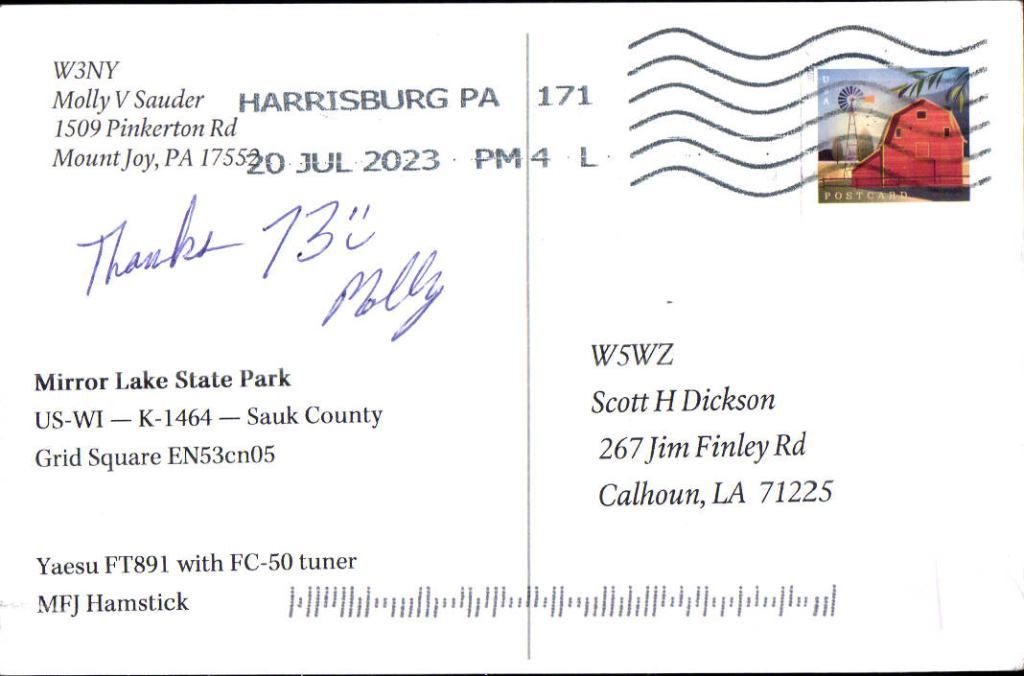 W3NY
Molly V Sauder
1509 Pinkerton Rd
Mount Joy, PA 17552
HARRISBURG PA 171
20 JUL 2023 · PM 4 L
USA
POSTCARD
Thanks 73 :)
Molly
Mirror Lake State Park
US-WI — K-1464 — Sauk County
Grid Square EN53cn05
Yaesu FT891 with FC-50 tuner
MFJ Hamstick
W5WZ
Scott H Dickson
267 Jim Finley Rd
Calhoun, LA 71225